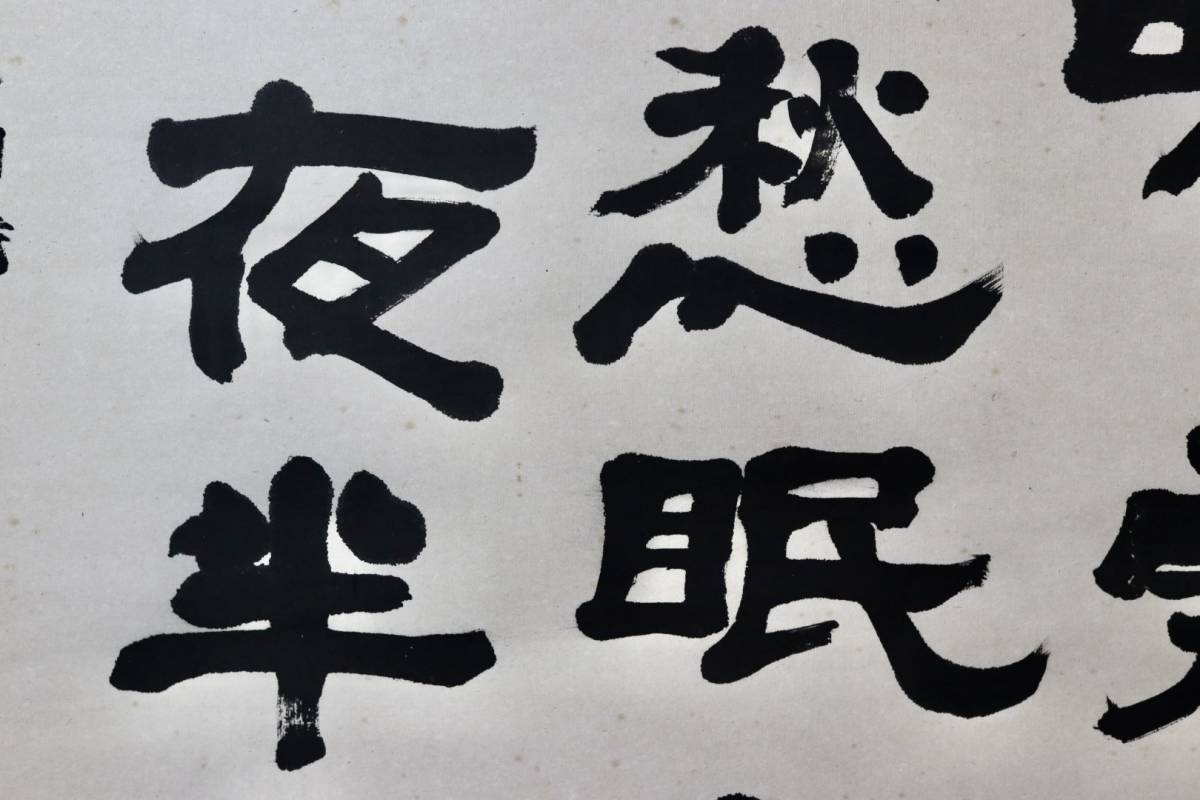 愁眠
夜半